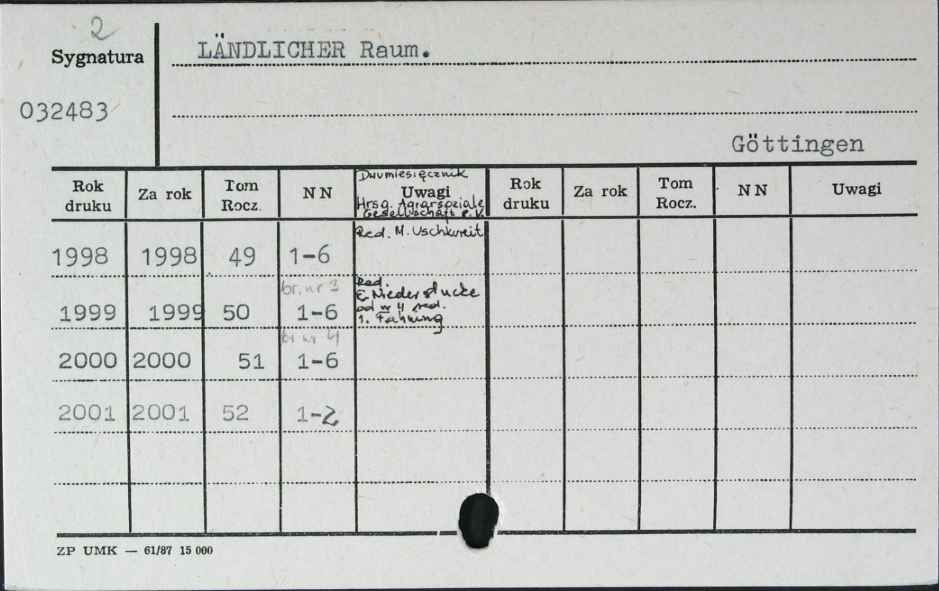 2
Sygnatura
LÄNDLICHER Raum.
032483
Göttingen
Rok druku Za rok Tom Rocz. N N Uwagi Rok druku Za rok Tom Rocz. N N Uwagi
Dwumiesięcznik
Hrsg. Agrarsoziale
Gesellschaft e.V.
Red. M. Uschkureit
1998 1998 49 1-6
br. nr 3
Red.
E. Niederstucke
od nr 4 red.
1999 1999 50 1-6
br. nr 4
2000 2000 51 1-6
2001 2001 52 1-2
ZP UMK — 61/87 15 000